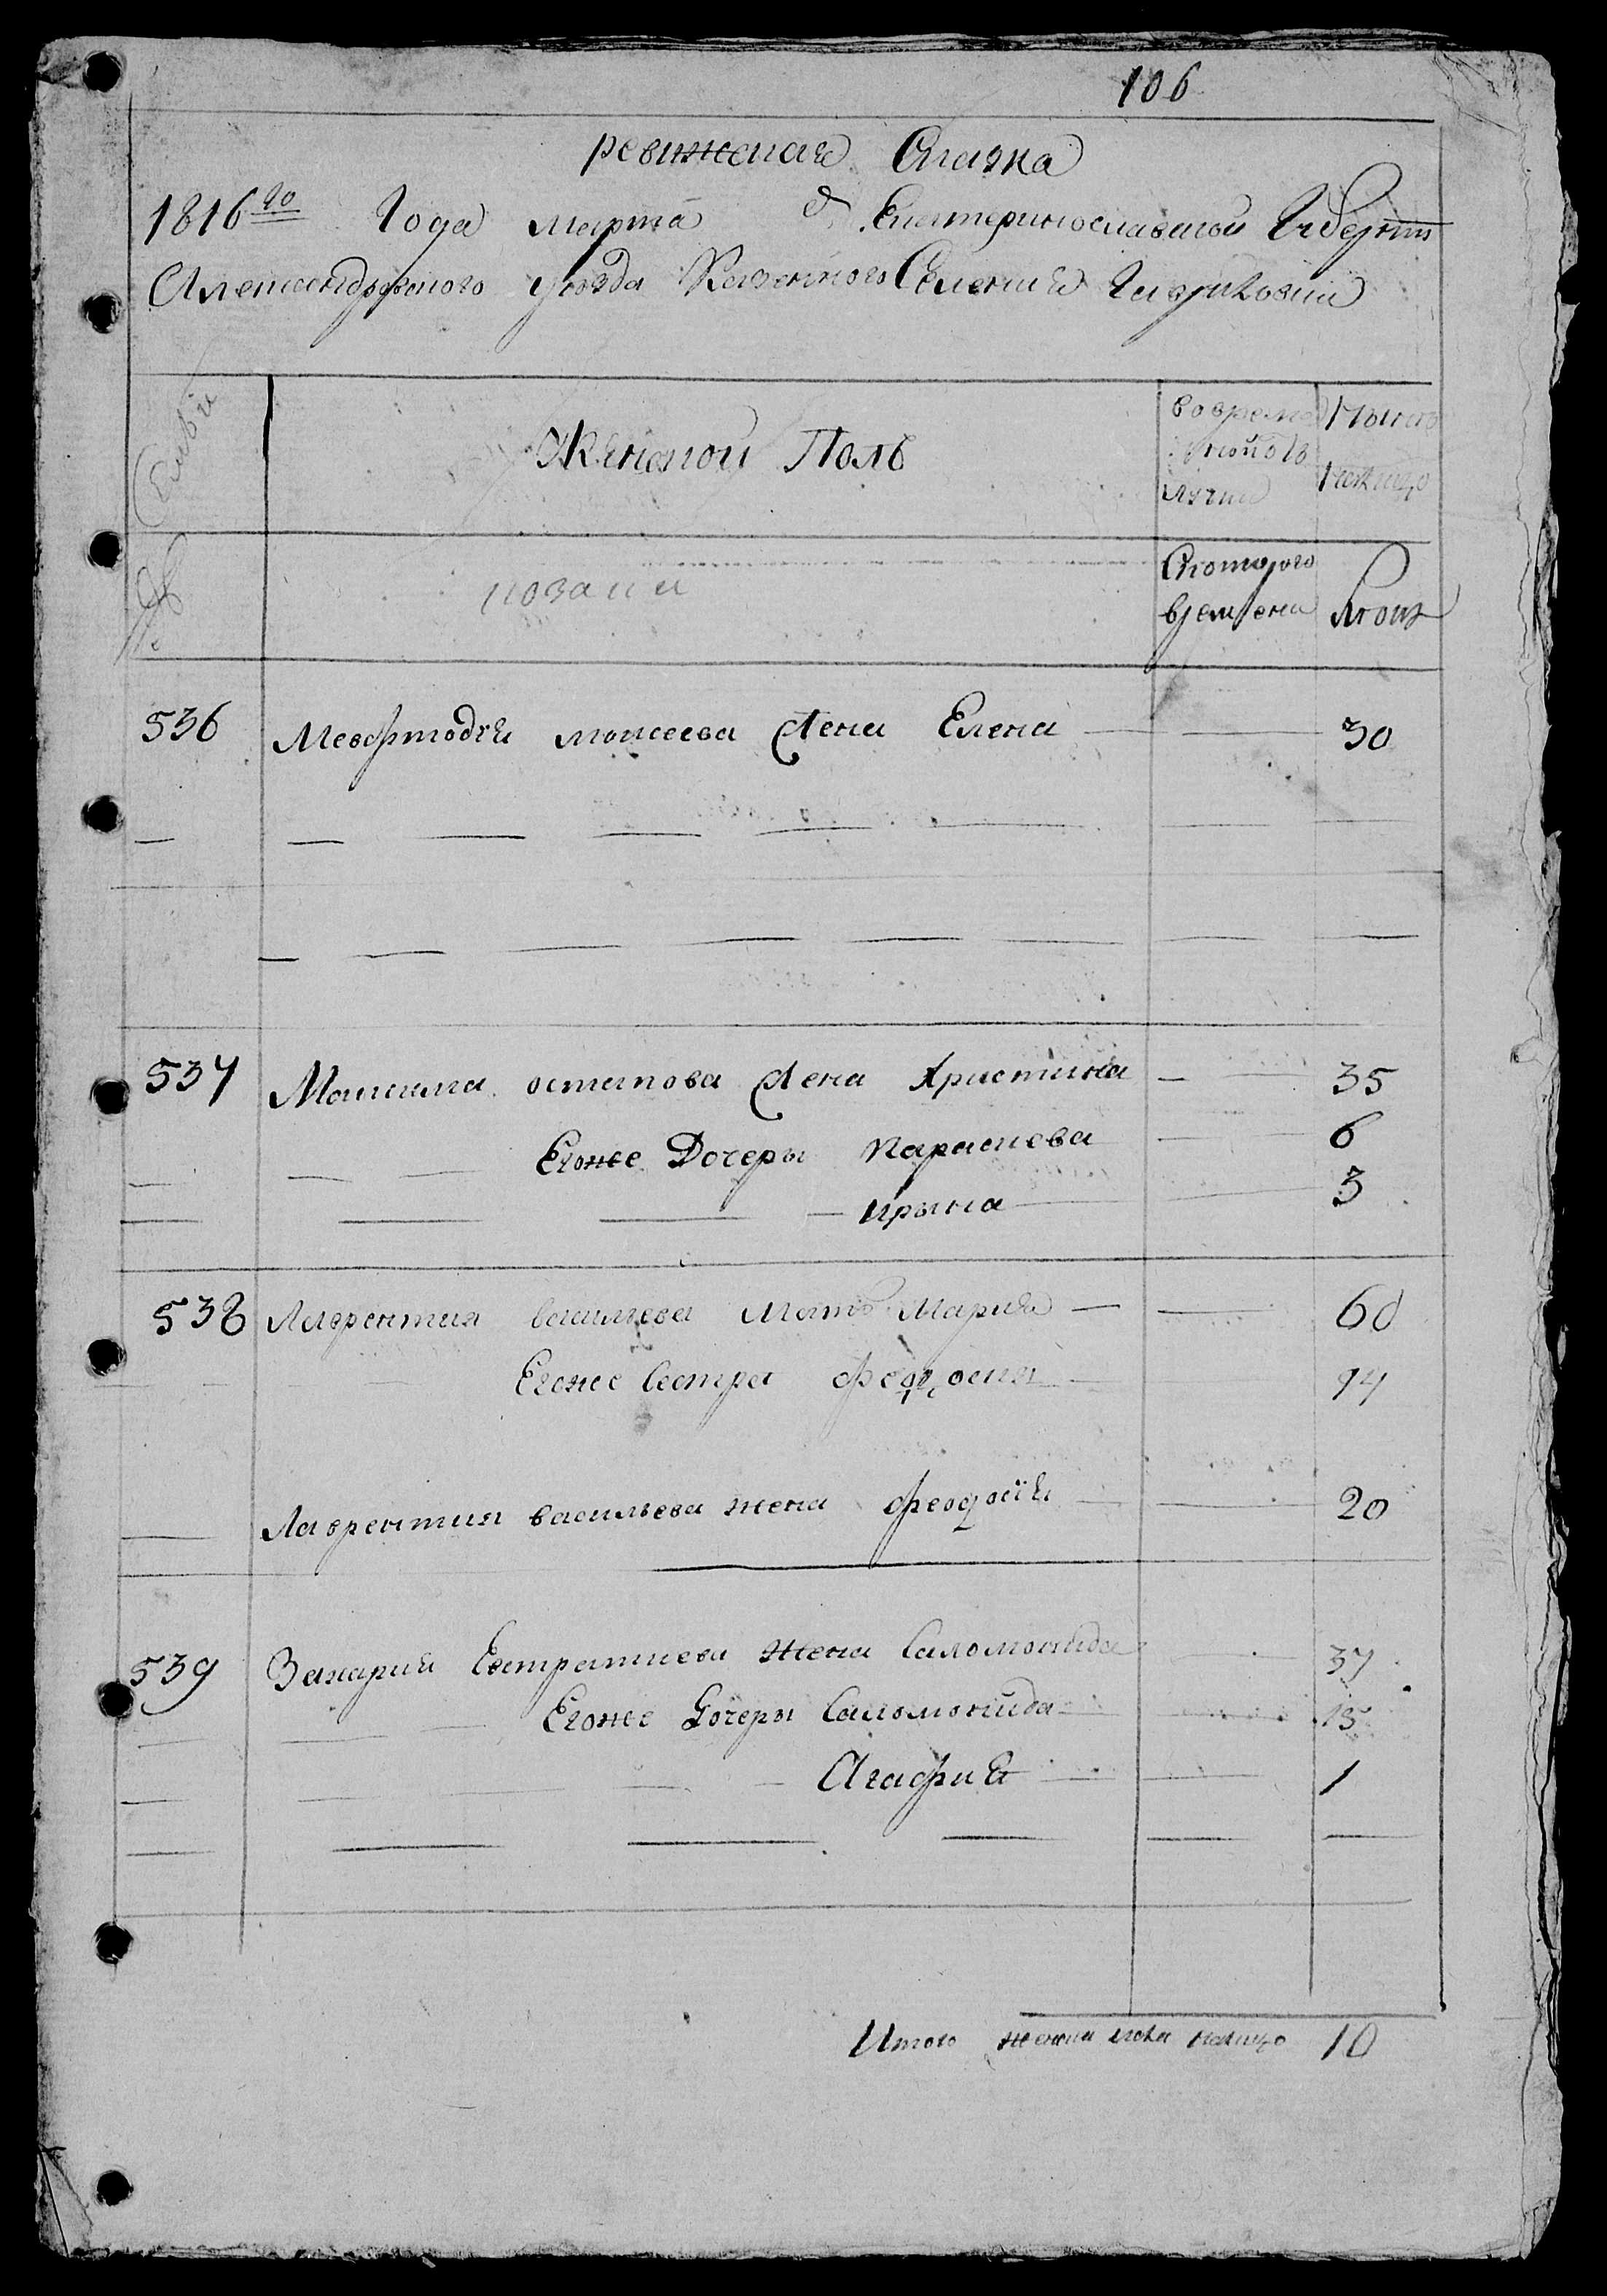 106
ревижская Сказка
1816го Года марта д Екатеринославской Губернии
Александровского уезда Казенного Селения Гавриловки
Семьи
Женской Полъ
во врем
лучки
Ныне
налицо
№
козаки
Скоторого
времени
Лета
536 Мефодия моисеева жена Елена 30
537 Максима остапова жена Христина 35
Егоже Дочеры Параскева 6
ирына 3
538 Лаврентия васильева Мать Мария 60
Егоже Сестра феодосия 14
Лаврентия васильева жена феодосия 20
539 Захария Евстратиева жена Саломонида 37
Егоже Дочеры Саломонида 15
Агафия 1
Итого женска пола налицо 10